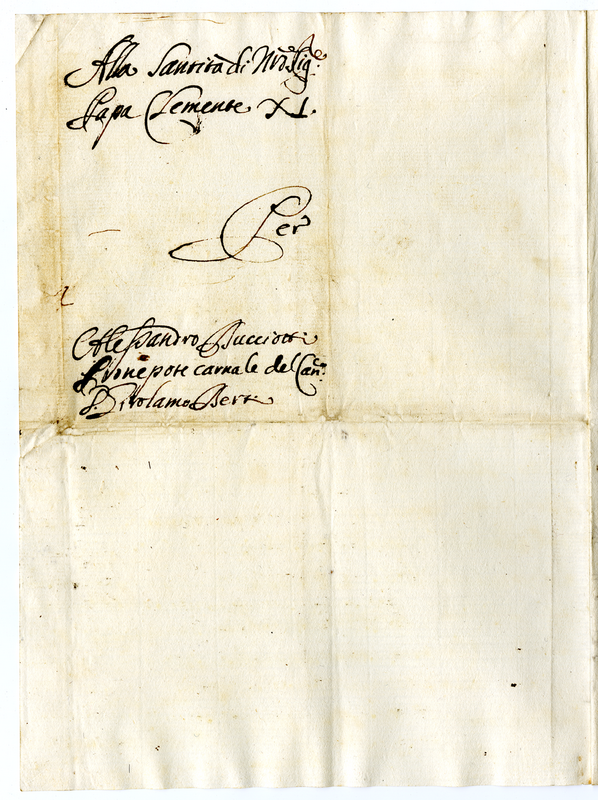 Alla Santità di Nro Sig.re
Papa Clemente XI.
Per
Alessandro Bucciotti
Pronepote carnale del Can.co
Girolamo Berti